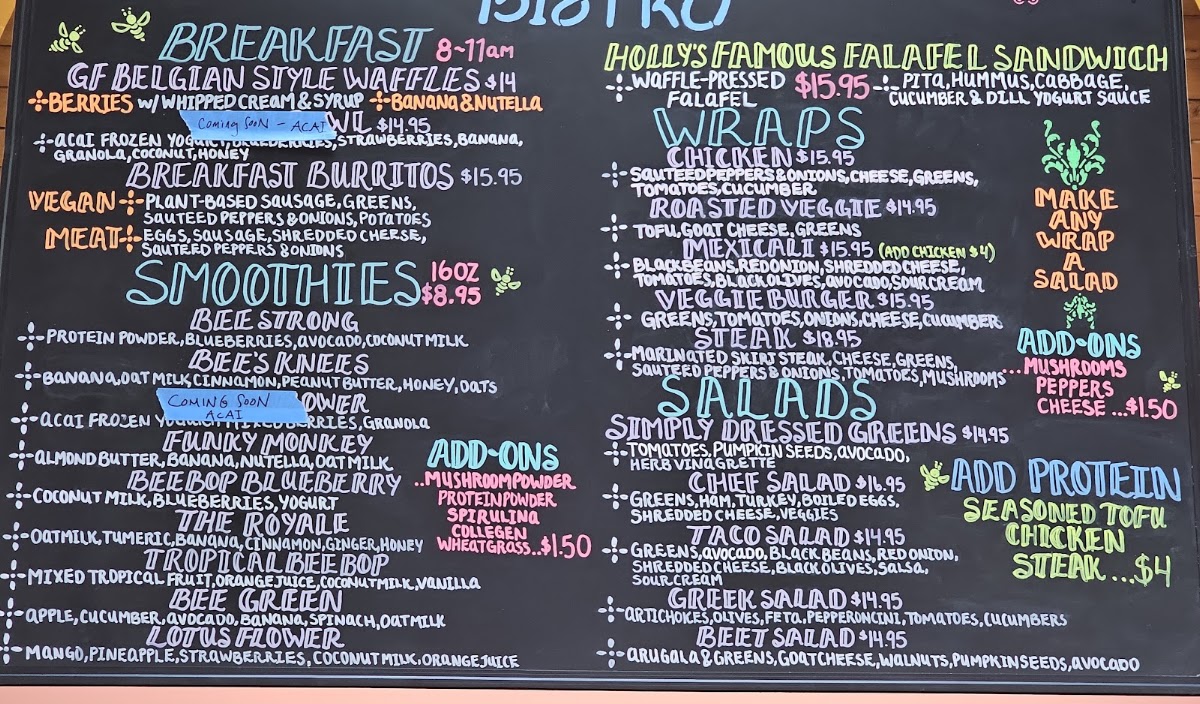 BISTRO
BREAKFAST 8~11am
GF BELGIAN STYLE WAFFLES $14
BERRIES W/ WHIPPED CREAM & SYRUP BANANA & NUTELLA
Coming Soon - ACAI
WL $14.95
ACAI FROZEN YOGURT, BLUEBERRIES, STRAWBERRIES, BANANA,
GRANOLA, COCONUT, HONEY
BREAKFAST BURRITOS $15.95
VEGAN PLANT-BASED SAUSAGE, GREENS,
SAUTEED PEPPERS & ONIONS, POTATOES
MEAT EGGS, SAUSAGE, SHREDDED CHEESE,
SAUTEED PEPPERS & ONIONS
SMOOTHIES 16OZ
$8.95
BEE STRONG
PROTEIN POWDER, BLUEBERRIES, AVOCADO, COCONUT MILK
BEE'S KNEES
BANANA, OAT MILK, CINNAMON, PEANUT BUTTER, HONEY, OATS
COMING SOON
ACAI
OWER
ACAI FROZEN YOGURT, MIXED BERRIES, GRANOLA
FUNKY MONKEY
ALMOND BUTTER, BANANA, NUTELLA, OAT MILK
BEEBOP BLUEBERRY
COCONUT MILK, BLUEBERRIES, YOGURT
THE ROYALE
OATMILK, TUMERIC, BANANA, CINNAMON, GINGER, HONEY
TROPICAL BEEBOP
MIXED TROPICAL FRUIT, ORANGE JUICE, COCONUT MILK, VANILLA
BEE GREEN
APPLE, CUCUMBER, AVOCADO, BANANA, SPINACH, OATMILK
LOTUS FLOWER
MANGO, PINEAPPLE, STRAWBERRIES, COCONUT MILK, ORANGE JUICE
ADD-ONS
..MUSHROOM POWDER
PROTEIN POWDER
SPIRULINA
COLLEGEN
WHEATGRASS..$1.50
HOLLY'S FAMOUS FALAFEL SANDWICH
WAFFLE-PRESSED $15.95 PITA, HUMMUS, CABBAGE,
FALAFEL CUCUMBER & DILL YOGURT SAUCE
WRAPS
CHICKEN $15.95
SAUTEED PEPPERS & ONIONS, CHEESE, GREENS,
TOMATOES, CUCUMBER
ROASTED VEGGIE $14.95
TOFU, GOAT CHEESE, GREENS
MEXICALI $15.95 (ADD CHICKEN $4)
BLACK BEANS, RED ONION, SHREDDED CHEESE,
TOMATOES, BLACK OLIVES, AVOCADO, SOUR CREAM
VEGGIE BURGER $15.95
GREENS, TOMATOES, ONIONS, CHEESE, CUCUMBER
STEAK $18.95
MARINATED SKIRT STEAK, CHEESE, GREENS,
SAUTEED PEPPERS & ONIONS, TOMATOES, MUSHROOMS
MAKE
ANY
WRAP
A
SALAD
ADD-ONS
...MUSHROOMS
PEPPERS
CHEESE ...$1.50
SALADS
SIMPLY DRESSED GREENS $14.95
TOMATOES, PUMPKIN SEEDS, AVOCADO,
HERB VINAGRETTE
CHEF SALAD $16.95
GREENS, HAM, TURKEY, BOILED EGGS,
SHREDDED CHEESE, VEGGIES
TACO SALAD $14.95
GREENS, AVOCADO, BLACK BEANS, RED ONION,
SHREDDED CHEESE, BLACK OLIVES, SALSA,
SOUR CREAM
GREEK SALAD $14.95
ARTICHOKES, OLIVES, FETA, PEPPERONCINI, TOMATOES, CUCUMBERS
BEET SALAD $14.95
ARUGALA & GREENS, GOAT CHEESE, WALNUTS, PUMPKIN SEEDS, AVOCADO
ADD PROTEIN
SEASONED TOFU
CHICKEN
STEAK ...$4